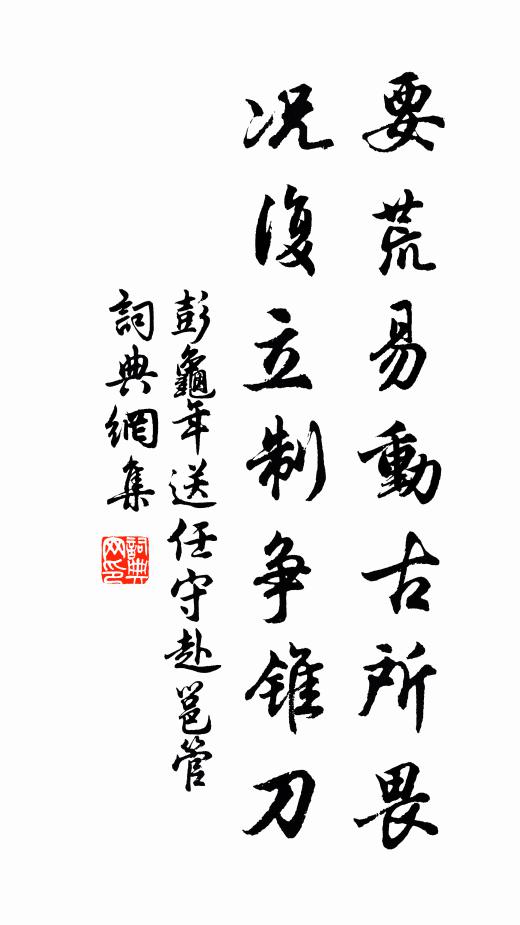 要荒易動古所畏
况復立制争錐刀
彭龜年送任守赴邕管
詞典網集
詞典网印